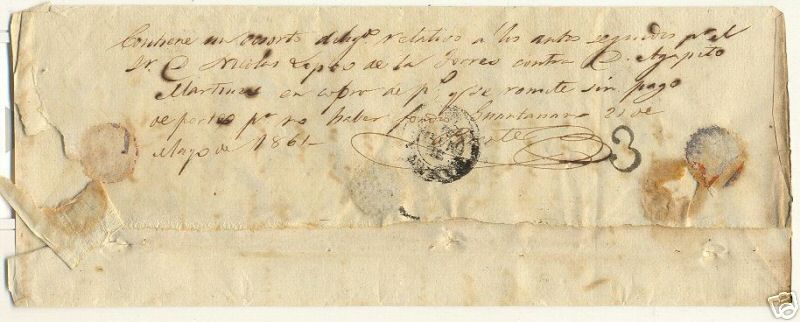 Contiene un esorto dilig.o relativo a los autos seguidos p.r el
Sr. D. Nicolas Lopes de la Torre contra D. Agapito
Martines en copro de p.s y se remite sin pago
de portes p.r no haber fondos Guantanamo 21 de
Mayo de 1861
3